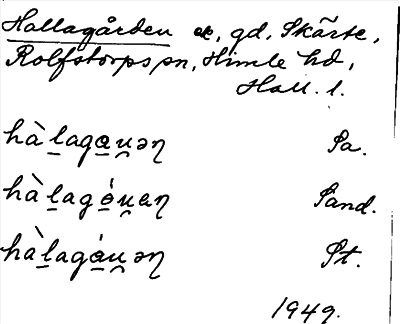 Hallagården , gd, Skärte,
Rolfstorps sn, Himle hd,
Hall. l.
hàl̠aga̠u̯əɳ Sa.
hàl̠agó̠u̯aɳ Sand.
hàl̠agá̠u̯əɳ St.
1949.